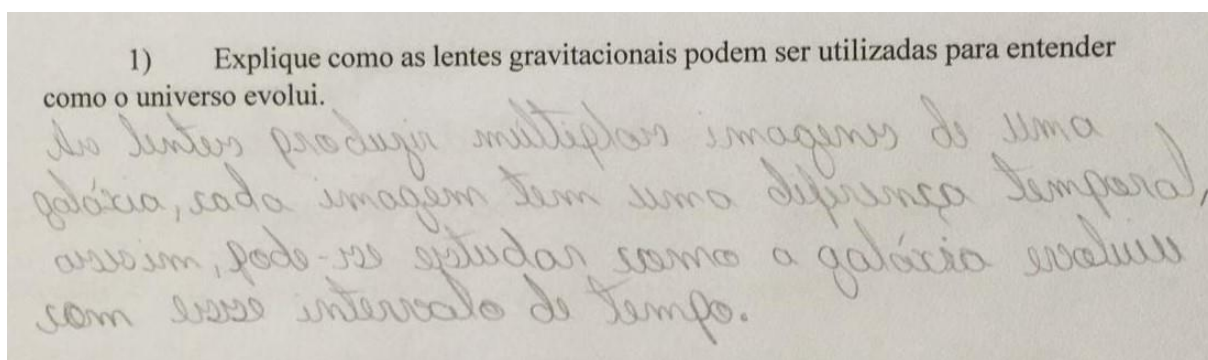 1) Explique como as lentes gravitacionais podem ser utilizadas para entender
como o universo evolui.
As lentes produzir multiplas imagens de uma
galáxia, cada imagem tem uma diferença temporal,
assim, pode-se estudar como a galáxia evoluiu
com esse intervalo de tempo.